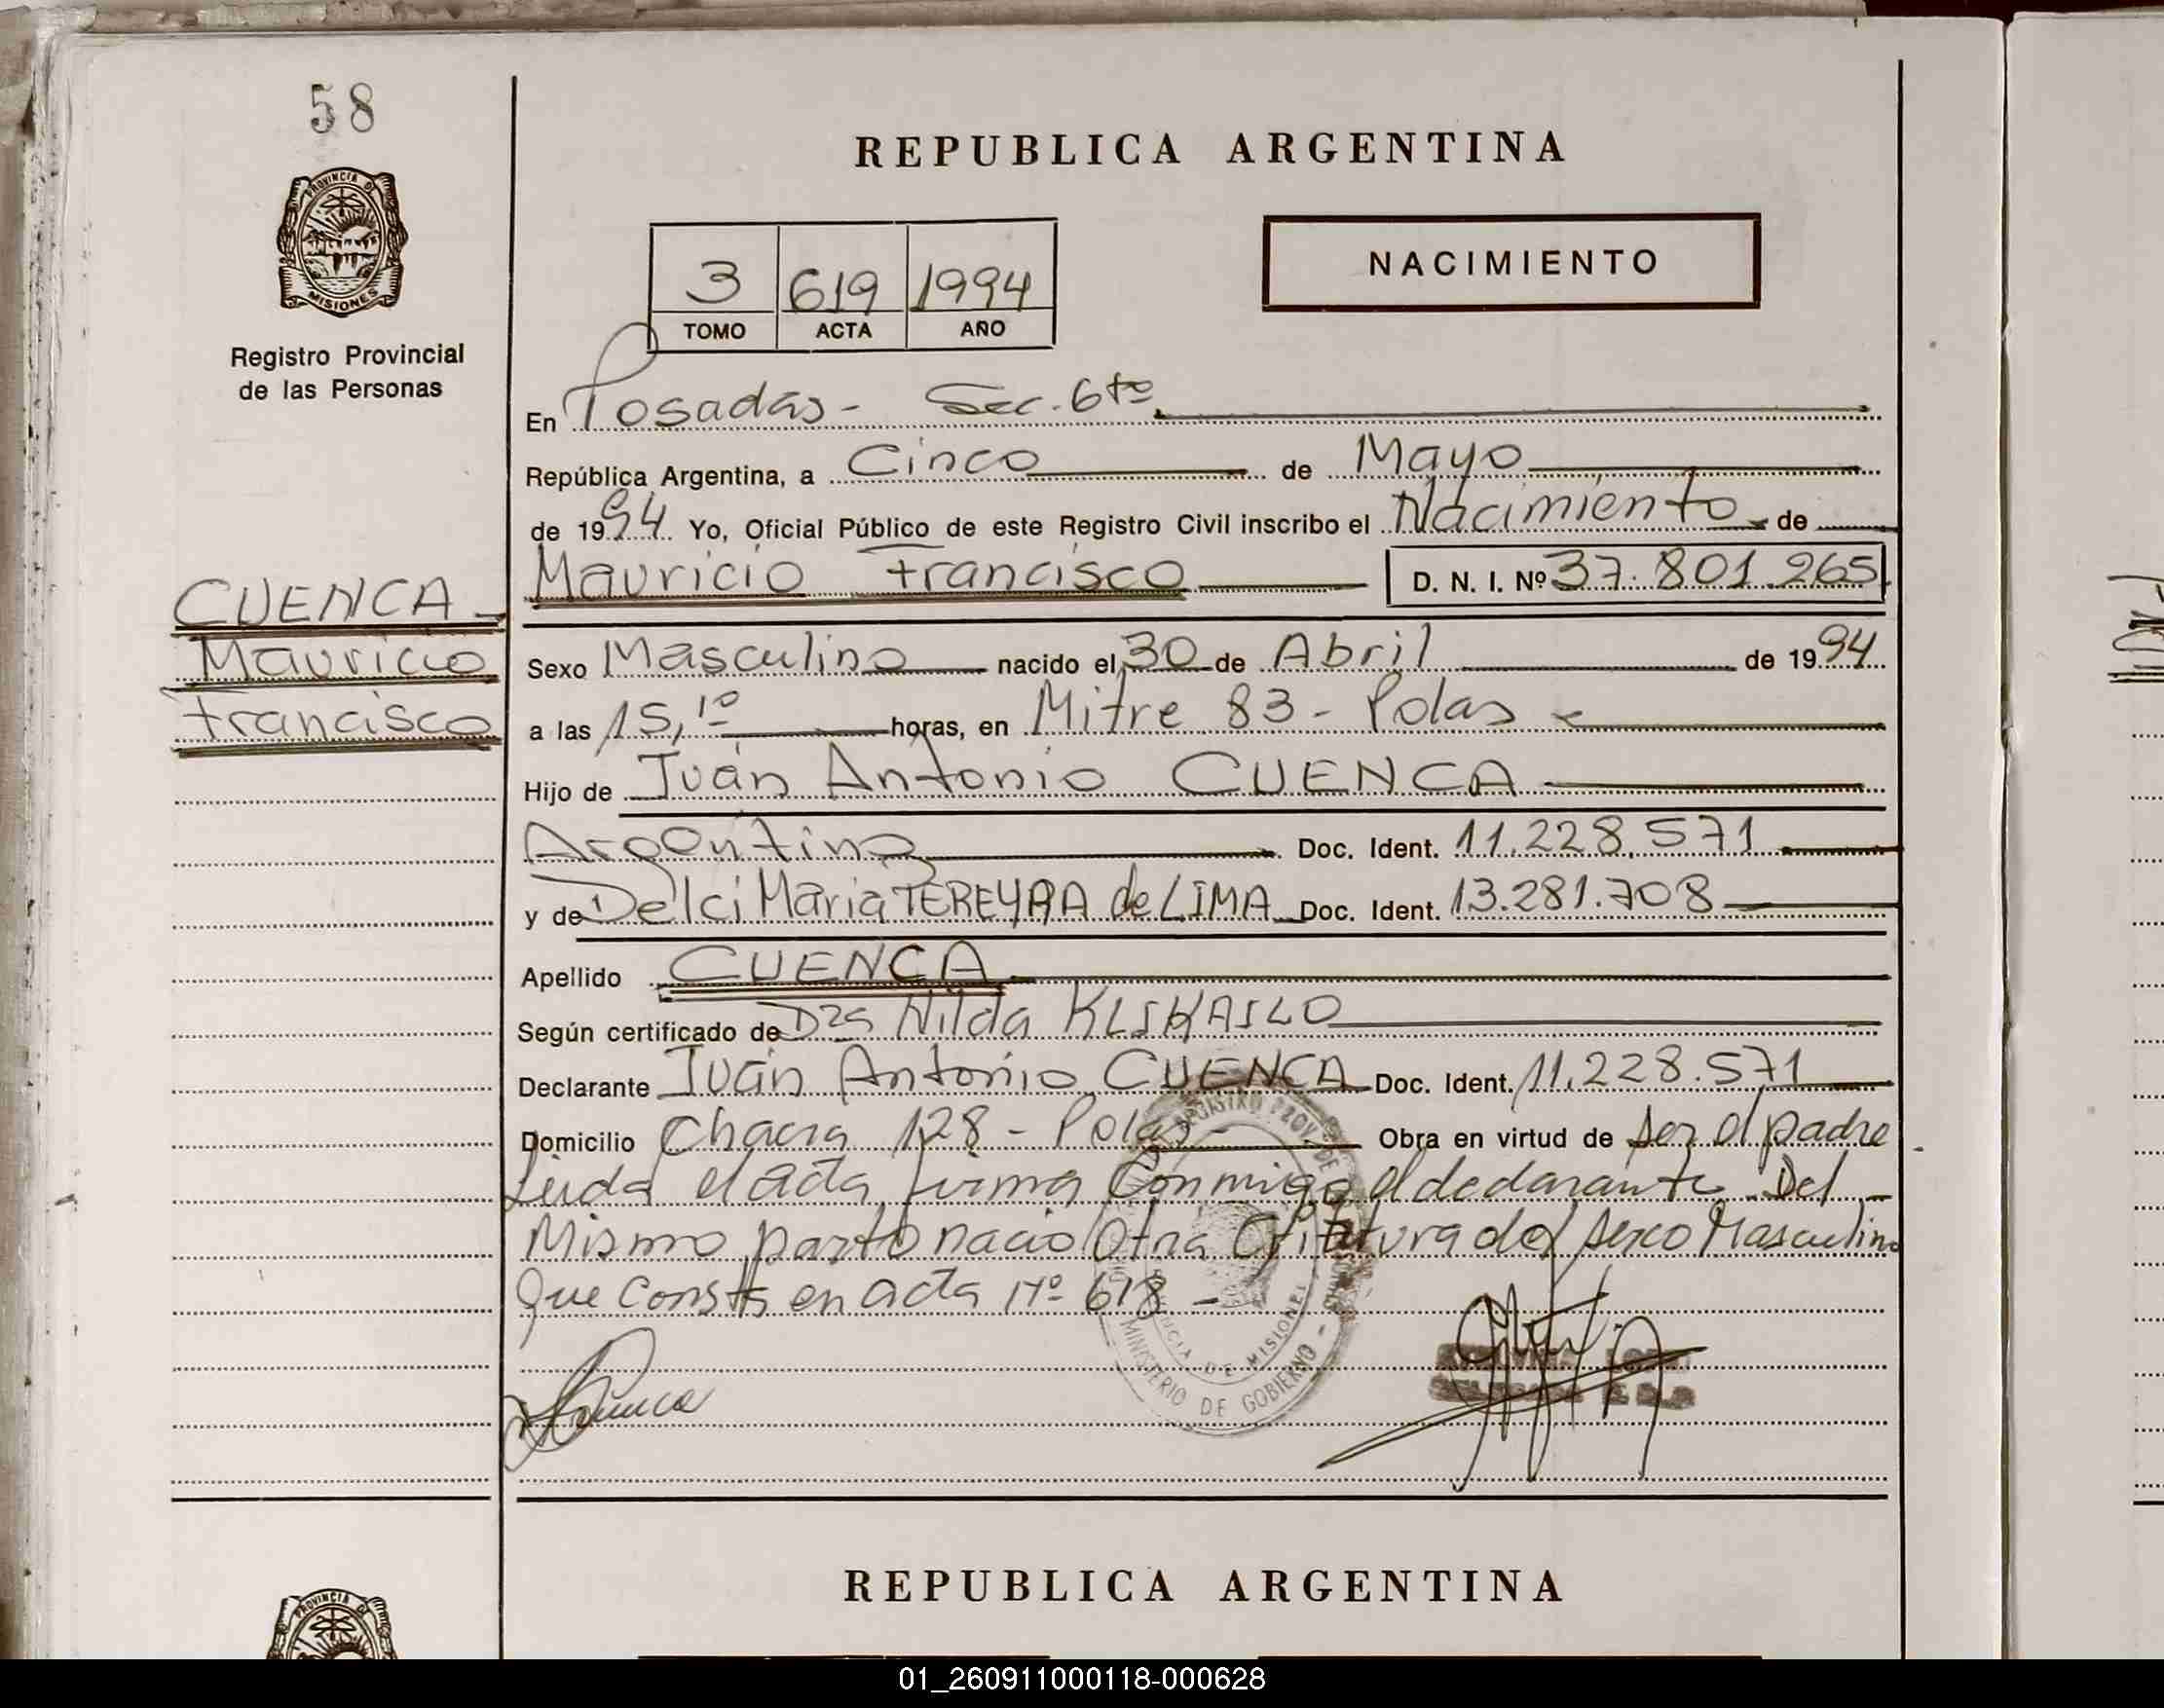 58
PROVINCIA DE
MISIONES
Registro Provincial
de las Personas
REPUBLICA ARGENTINA
3 619 1994
TOMO ACTA AÑO
NACIMIENTO
En Posadas - Sec. 6ta
República Argentina, a Cinco de Mayo
de 1994 Yo, Oficial Público de este Registro Civil inscribo el Nacimiento de
Mauricio Francisco D. N. I. Nº 37.801.265
CUENCA
Mauricio
Francisco
Sexo Masculino nacido el 30 de Abril de 1994
a las 15,10 horas, en Mitre 83 - Pdas
Hijo de Juan Antonio CUENCA
Argentino Doc. Ident. 11.228.571
y de Delci Maria TEREYRA de LIMA Doc. Ident. 13.281.708
Apellido CUENCA
Según certificado de Dra Nilda
Declarante Juan Antonio CUENCA Doc. Ident. 11.228.571
Domicilio Chacra 128 - Pdas Obra en virtud de ser el padre
Leida el acta firma Conmigo el declarante Del
Mismo parto nacio Otra Criatura del sexo Masculino
Que Consta en acta Nº 618 -
REGISTRO PROV. DE
PROVINCIA DE MISIONES
MINISTERIO DE GOBIERNO
REPUBLICA ARGENTINA
PROVINCIA DE
01_260911000118-000628